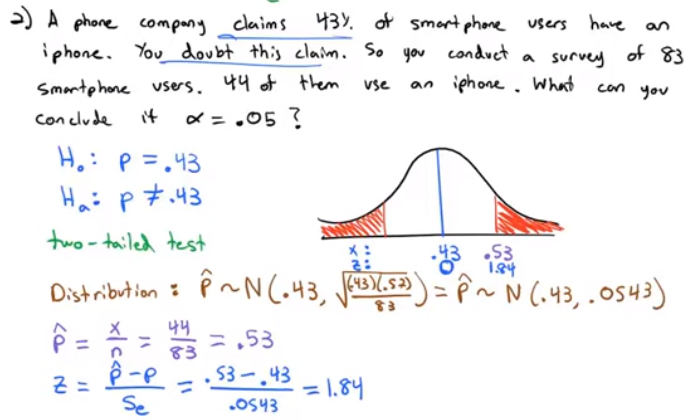 2) A phone company claims 43% of smartphone users have an
iphone. You doubt this claim. So you conduct a survey of 83
smartphone users. 44 of them use an iphone. What can you
conclude if α = .05 ?
H₀: p = .43
Hₐ: p ≠ .43
two-tailed test
x: .43 .53
z: 0 1.84
Distribution: p̂ ~ N(.43, √((.43)(.57)/83)) = p̂ ~ N(.43, .0543)
p̂ = x/n = 44/83 = .53
z = (p̂ - p)/Se = (.53 - .43)/.0543 = 1.84